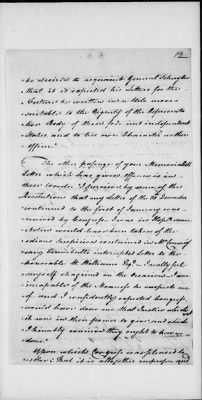 12
be desired to acquaint General Schuyler
that it is expected his Letters for the
future be written in a Stile more
suitable to the Dignity of the Represent
tive Body of these free and independent
States and to his own Character as their
Officer."
The other passage of your Memorialists
Letter which has given offence is in
these words "I perceive by some of the
Resolutions that my letter of the 30 December
continued to the first of January was
received by Congress. I was in Hopes
notice would have been taken of the
odious Suspicion contained in Mr
intercepted Letter to the
Honorable W Esqr. I really feel
myself chagrined on the Occasion. I am
incapable of the Meanness he suspects me
of and I confidently expected Congress
would have done me that Justice which
it was in their power to give and which
I humbly conceive they ought to have
done."
Upon which Congress was pleased to
resolve "That it is altogether improper and